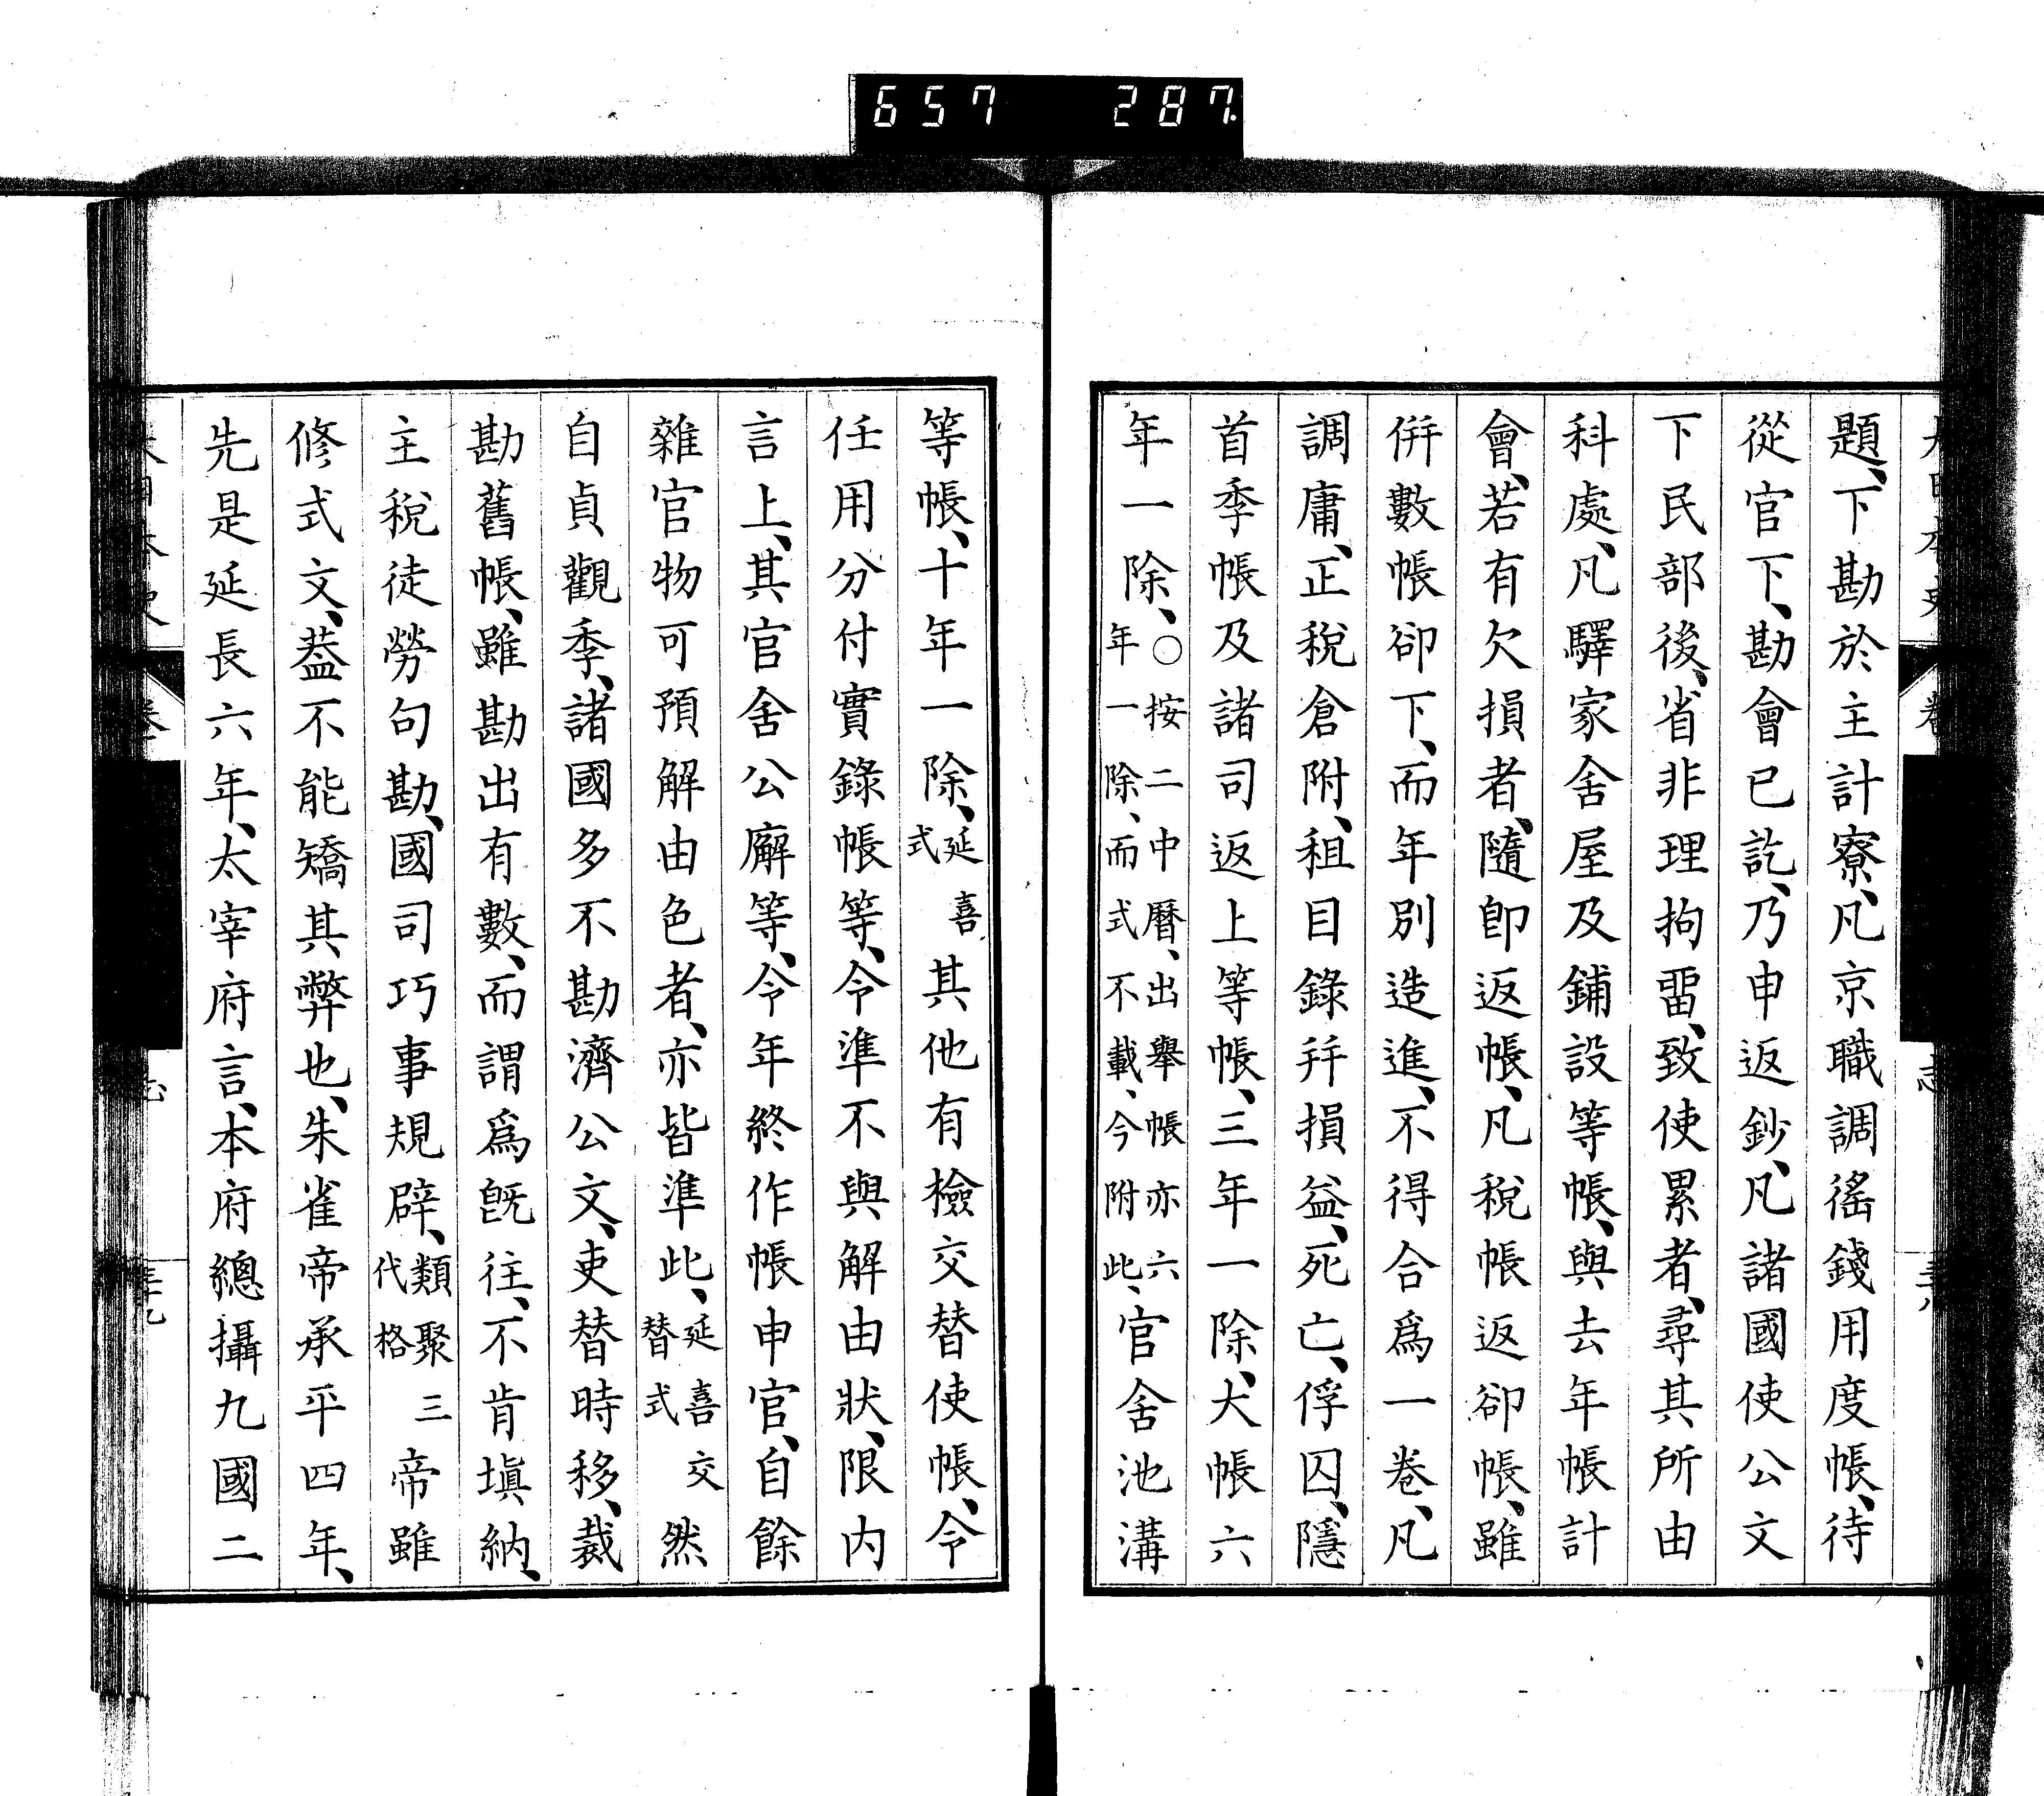 657 287.
題、下勘於主計寮、凡京職調徭錢用度帳、待
從官下、勘會已訖、乃申返鈔、凡諸國使公文
下民部後、省非理拘畱、致使累者、尋其所由
科處、凡驛家舍屋及鋪設等帳、與去年帳計
會、若有欠損者、隨卽返帳、凡稅帳返卻帳、雖
併數帳卻下、而年別造進、不得合爲一卷、凡
調庸、正稅倉附、租目錄幷損益、死亡、俘囚、隱
首季帳及諸司返上等帳、三年一除、大帳六
年一除、○按二中曆、出舉帳亦六年一除、而式不載、今附此、官舍池溝
等帳、十年一除、延喜式其他有檢交替使帳、令
任用分付實錄帳等、令準不與解由狀、限内
言上、其官舍公廨等、令年終作帳申官、自餘
雜官物可預解由色者、亦皆準此、延喜交替式然
自貞觀季、諸國多不勘濟公文、吏替時移、裁
勘舊帳、雖勘出有數、而謂爲旣往、不肯塡納、
主稅徒勞句勘、國司巧事規辟、類聚三代格帝雖
修式文、葢不能矯其弊也、朱雀帝承平四年、
先是延長六年、太宰府言、本府總攝九國二